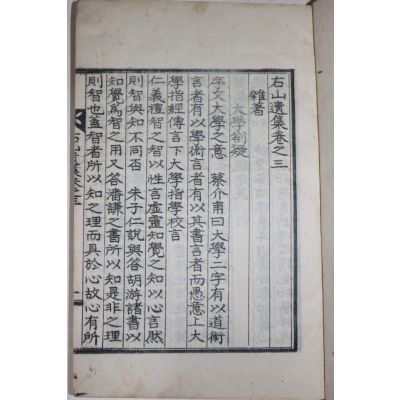 右山遺集卷之三
雜著
大學劄疑
序文大學之意 蔡介甫曰大學二字有以道術
言者有以學術言者有以其書言者而愚意上大
學指經傳言下大學指學校言
仁義禮智之智以性言虛靈知覺之知以心言然
則智與知不同否 朱子仁說與答胡游諸書以
知覺爲智之用又答潘謙之書所以知是非之理
則智也蓋智者所以知之理而具於心故心有所